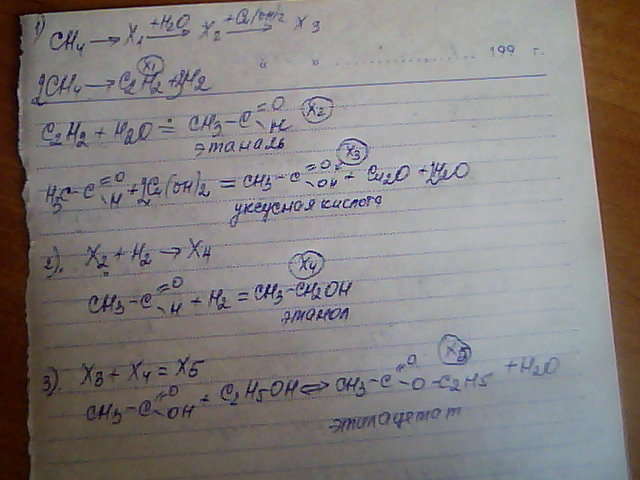 1) CH4 → X1 +H2O → X2 +Cu(OH)2 → X3
" " 199 г.
2CH4 → C2H2 + 3H2 X1
C2H2 + H2O = CH3-C=O H X2
этаналь
H3C-C=O H + 2Cu(OH)2 = CH3-C=O OH + Cu2O + 2H2O X3
уксусная кислота
2). X2 + H2 → X4
CH3-C=O H + H2 = CH3-CH2OH X4
этанол
3) X3 + X4 = X5
CH3-C=O OH + C2H5OH ⇔ CH3-C=O -O-C2H5 + H2O X5
этилацетат